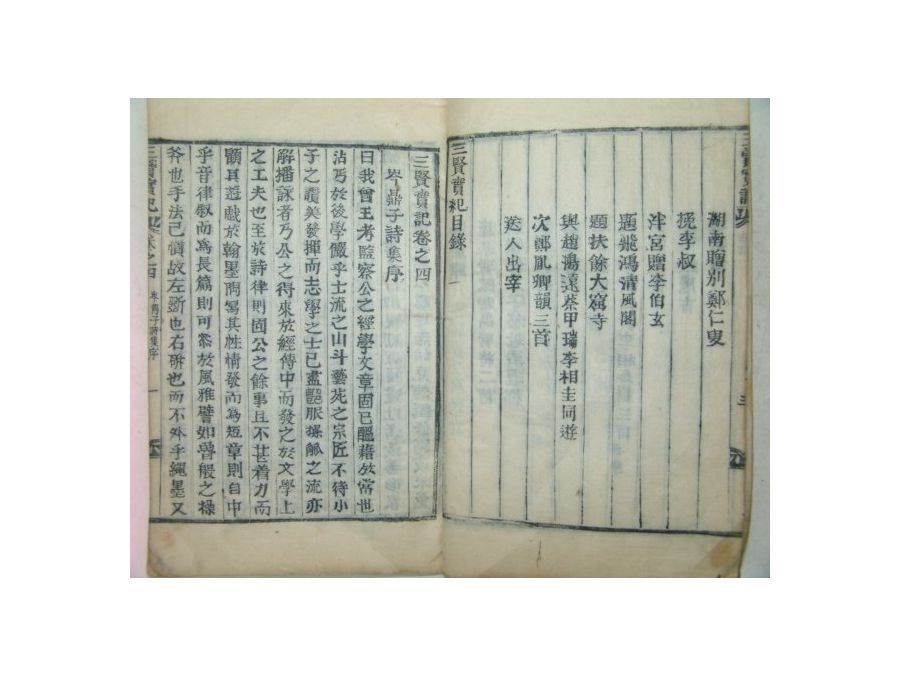 湖南贈別鄭仁叟
挽李叔
泮宮贈李伯玄
題飛鴻清風閣
題扶餘大寫寺
與趙鴻遠蔡甲瑞李相圭同遊
次鄭胤卿韻三首
送人出宰
三賢實紀目錄
三賢實記卷之四
岑鼎子詩集序
曰我曾王考監察公之經學文章固已醞藉於當世
沾丐於後學儼乎士流之山斗藝苑之宗匠不待小
子之讚美發揮而志學之士已盡艷服操觚之流亦
解播詠者乃公之得來於經傳中而發之於文學上
之工夫也至於詩律則固公之餘事且不甚着力而
顧其遊戲於翰墨陶寫其性情發而爲短章則自中
乎音律叙而爲長篇則可窺於風雅譬如魯般之操
斧也手法已猶故左斲也右斫也而不外乎繩墨又
三賢實記
卷之四
一
三